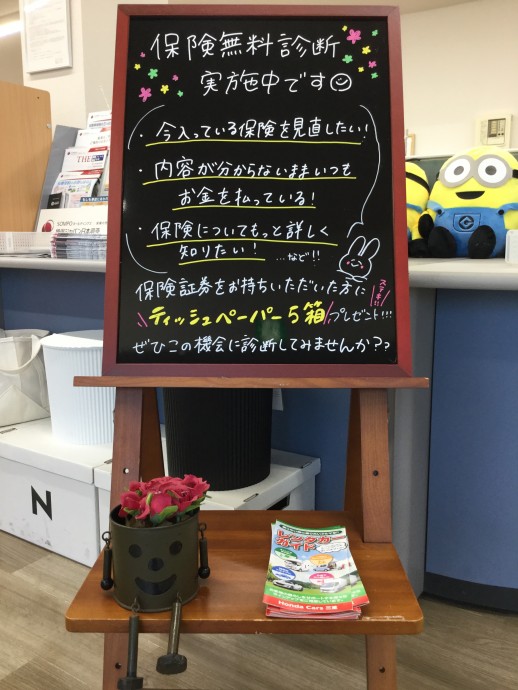 保険無料診断
実施中です
・今入っている保険を見直したい!
・内容が分からないままいつも
お金を払っている!
・保険についてもっと詳しく
知りたい! ...など!!
保険証券をお持ちいただいた方に
ティッシュペーパー5箱 プレゼント!!!
ぜひこの機会に診断してみませんか??
N
レンタカー
ガイド
Honda Cars
THE
SOMPO